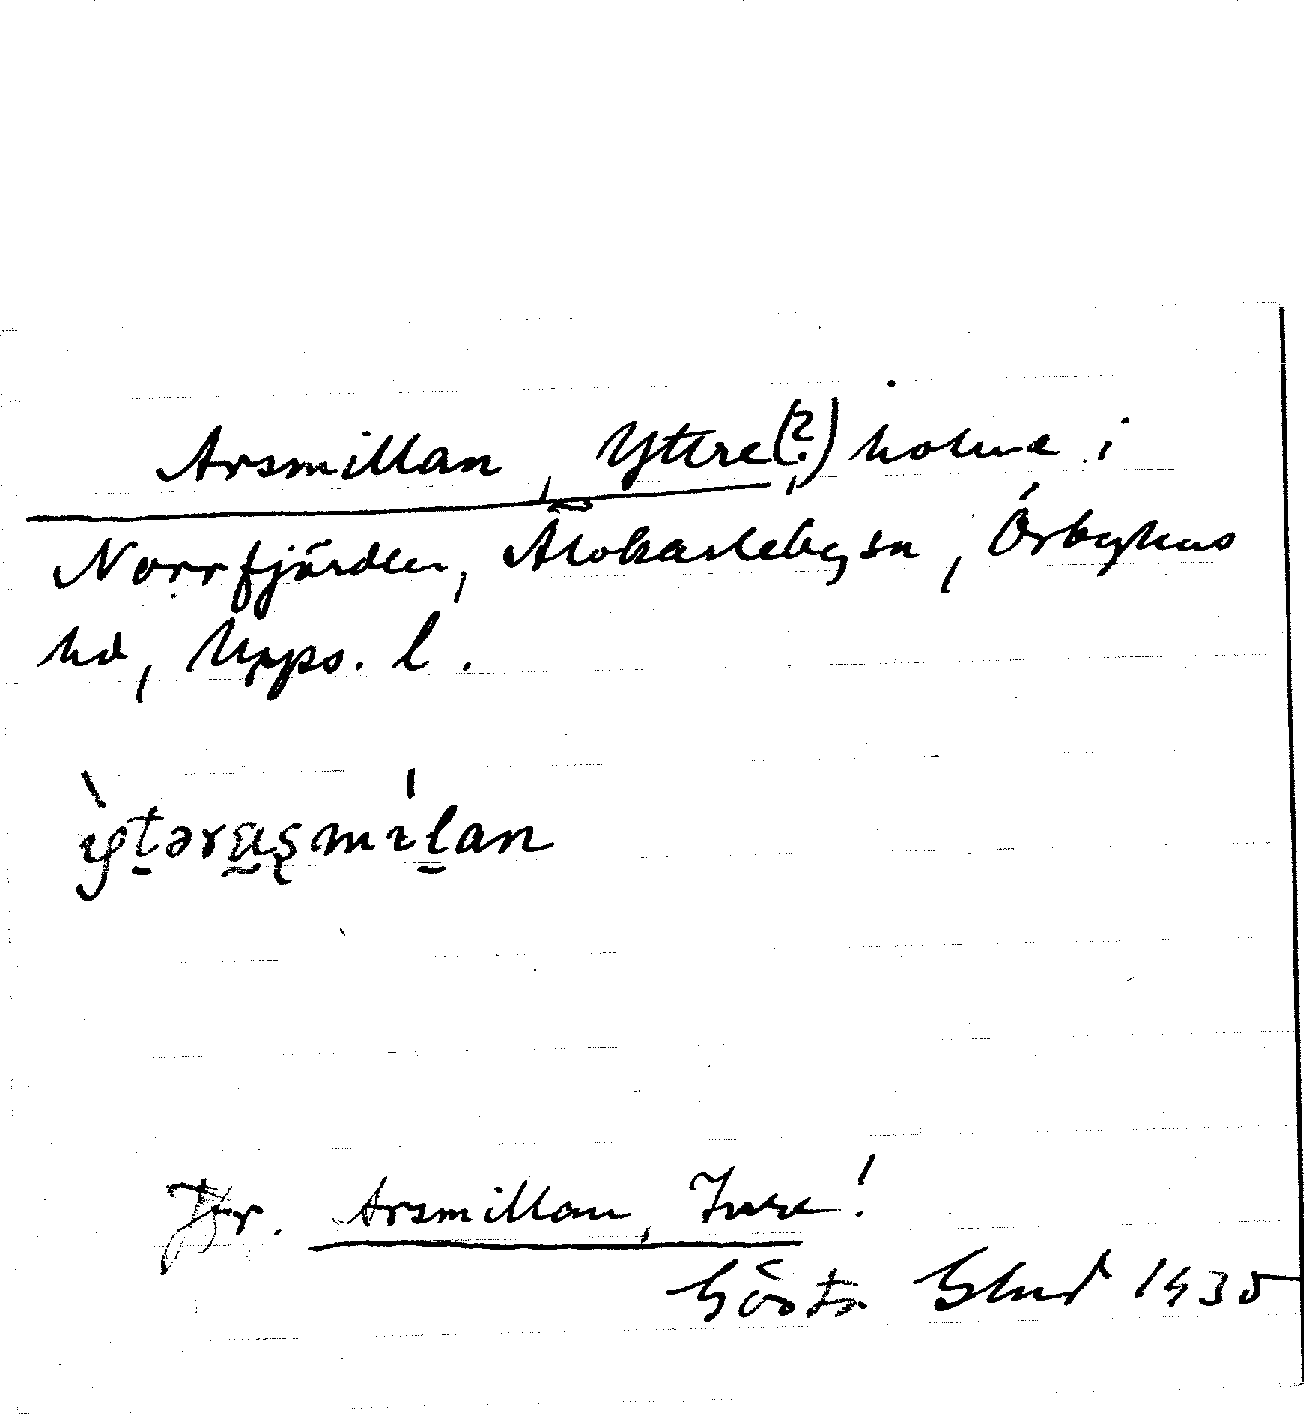 Arsmillan, Yttre(?), holme i
Norrfjärden, Älvkarleby sn, Örbyhus
hd, Upps. l.
ỳtəraşmílan
Jfr. Arsmillan, Inre!
Gösta 1935